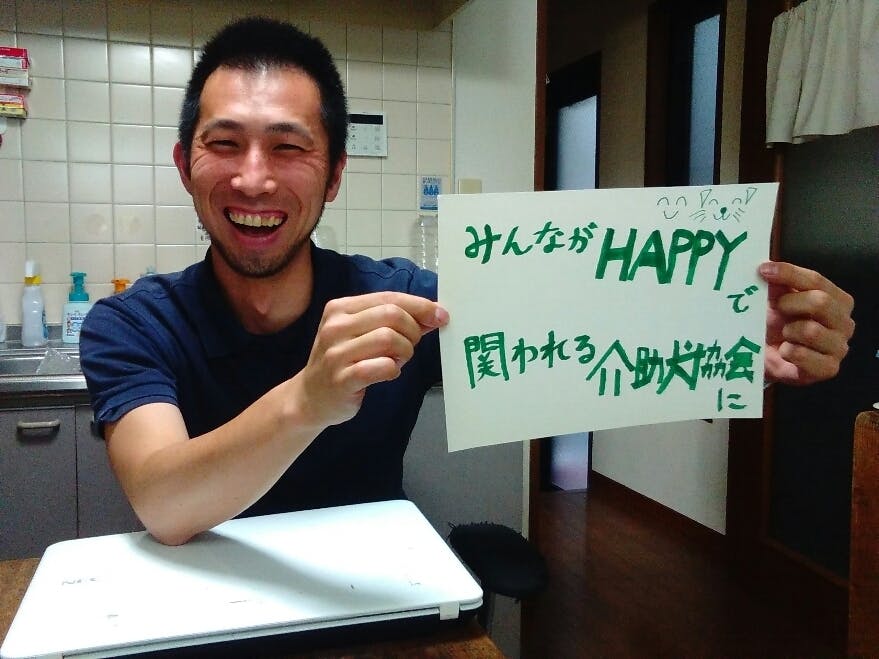 みんながHAPPY
で
関われる介助犬協会
に